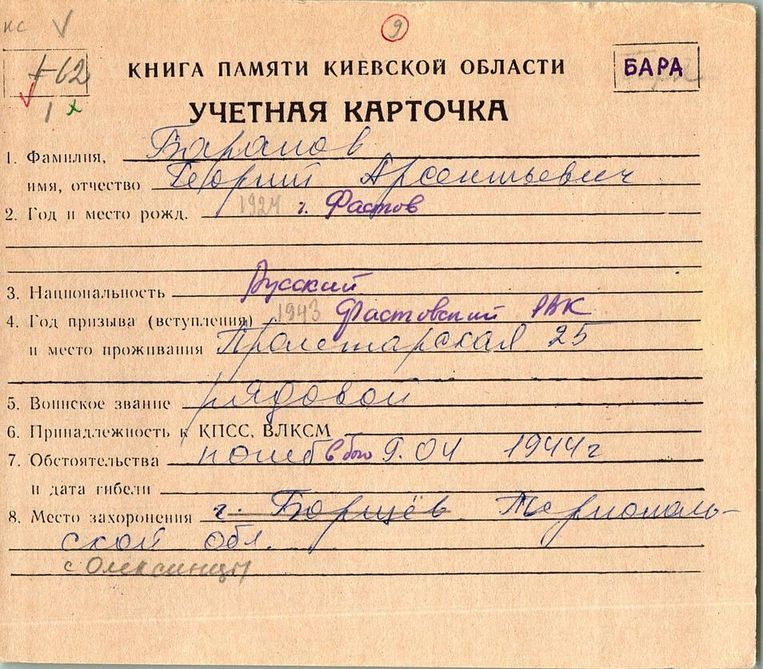 КС V 9
462 КНИГА ПАМЯТИ КИЕВСКОЙ ОБЛАСТИ БАРА
1 х УЧЕТНАЯ КАРТОЧКА
1. Фамилия, Баранов
имя, отчество Георгий Арсентьевич
2. Год и место рожд. 1924 г. Фастов
3. Национальность Русский
4. Год призыва (вступления) 1943 Фастовский РВК
и место проживания Пролетарская 25
5. Воинское звание рядовой
6. Принадлежность к КПСС, ВЛКСМ
7. Обстоятельства погиб в бою 9.04 1944 г
и дата гибели
8. Место захоронения г. Борщёв Тернополь-
ской обл.
с Олексинцы